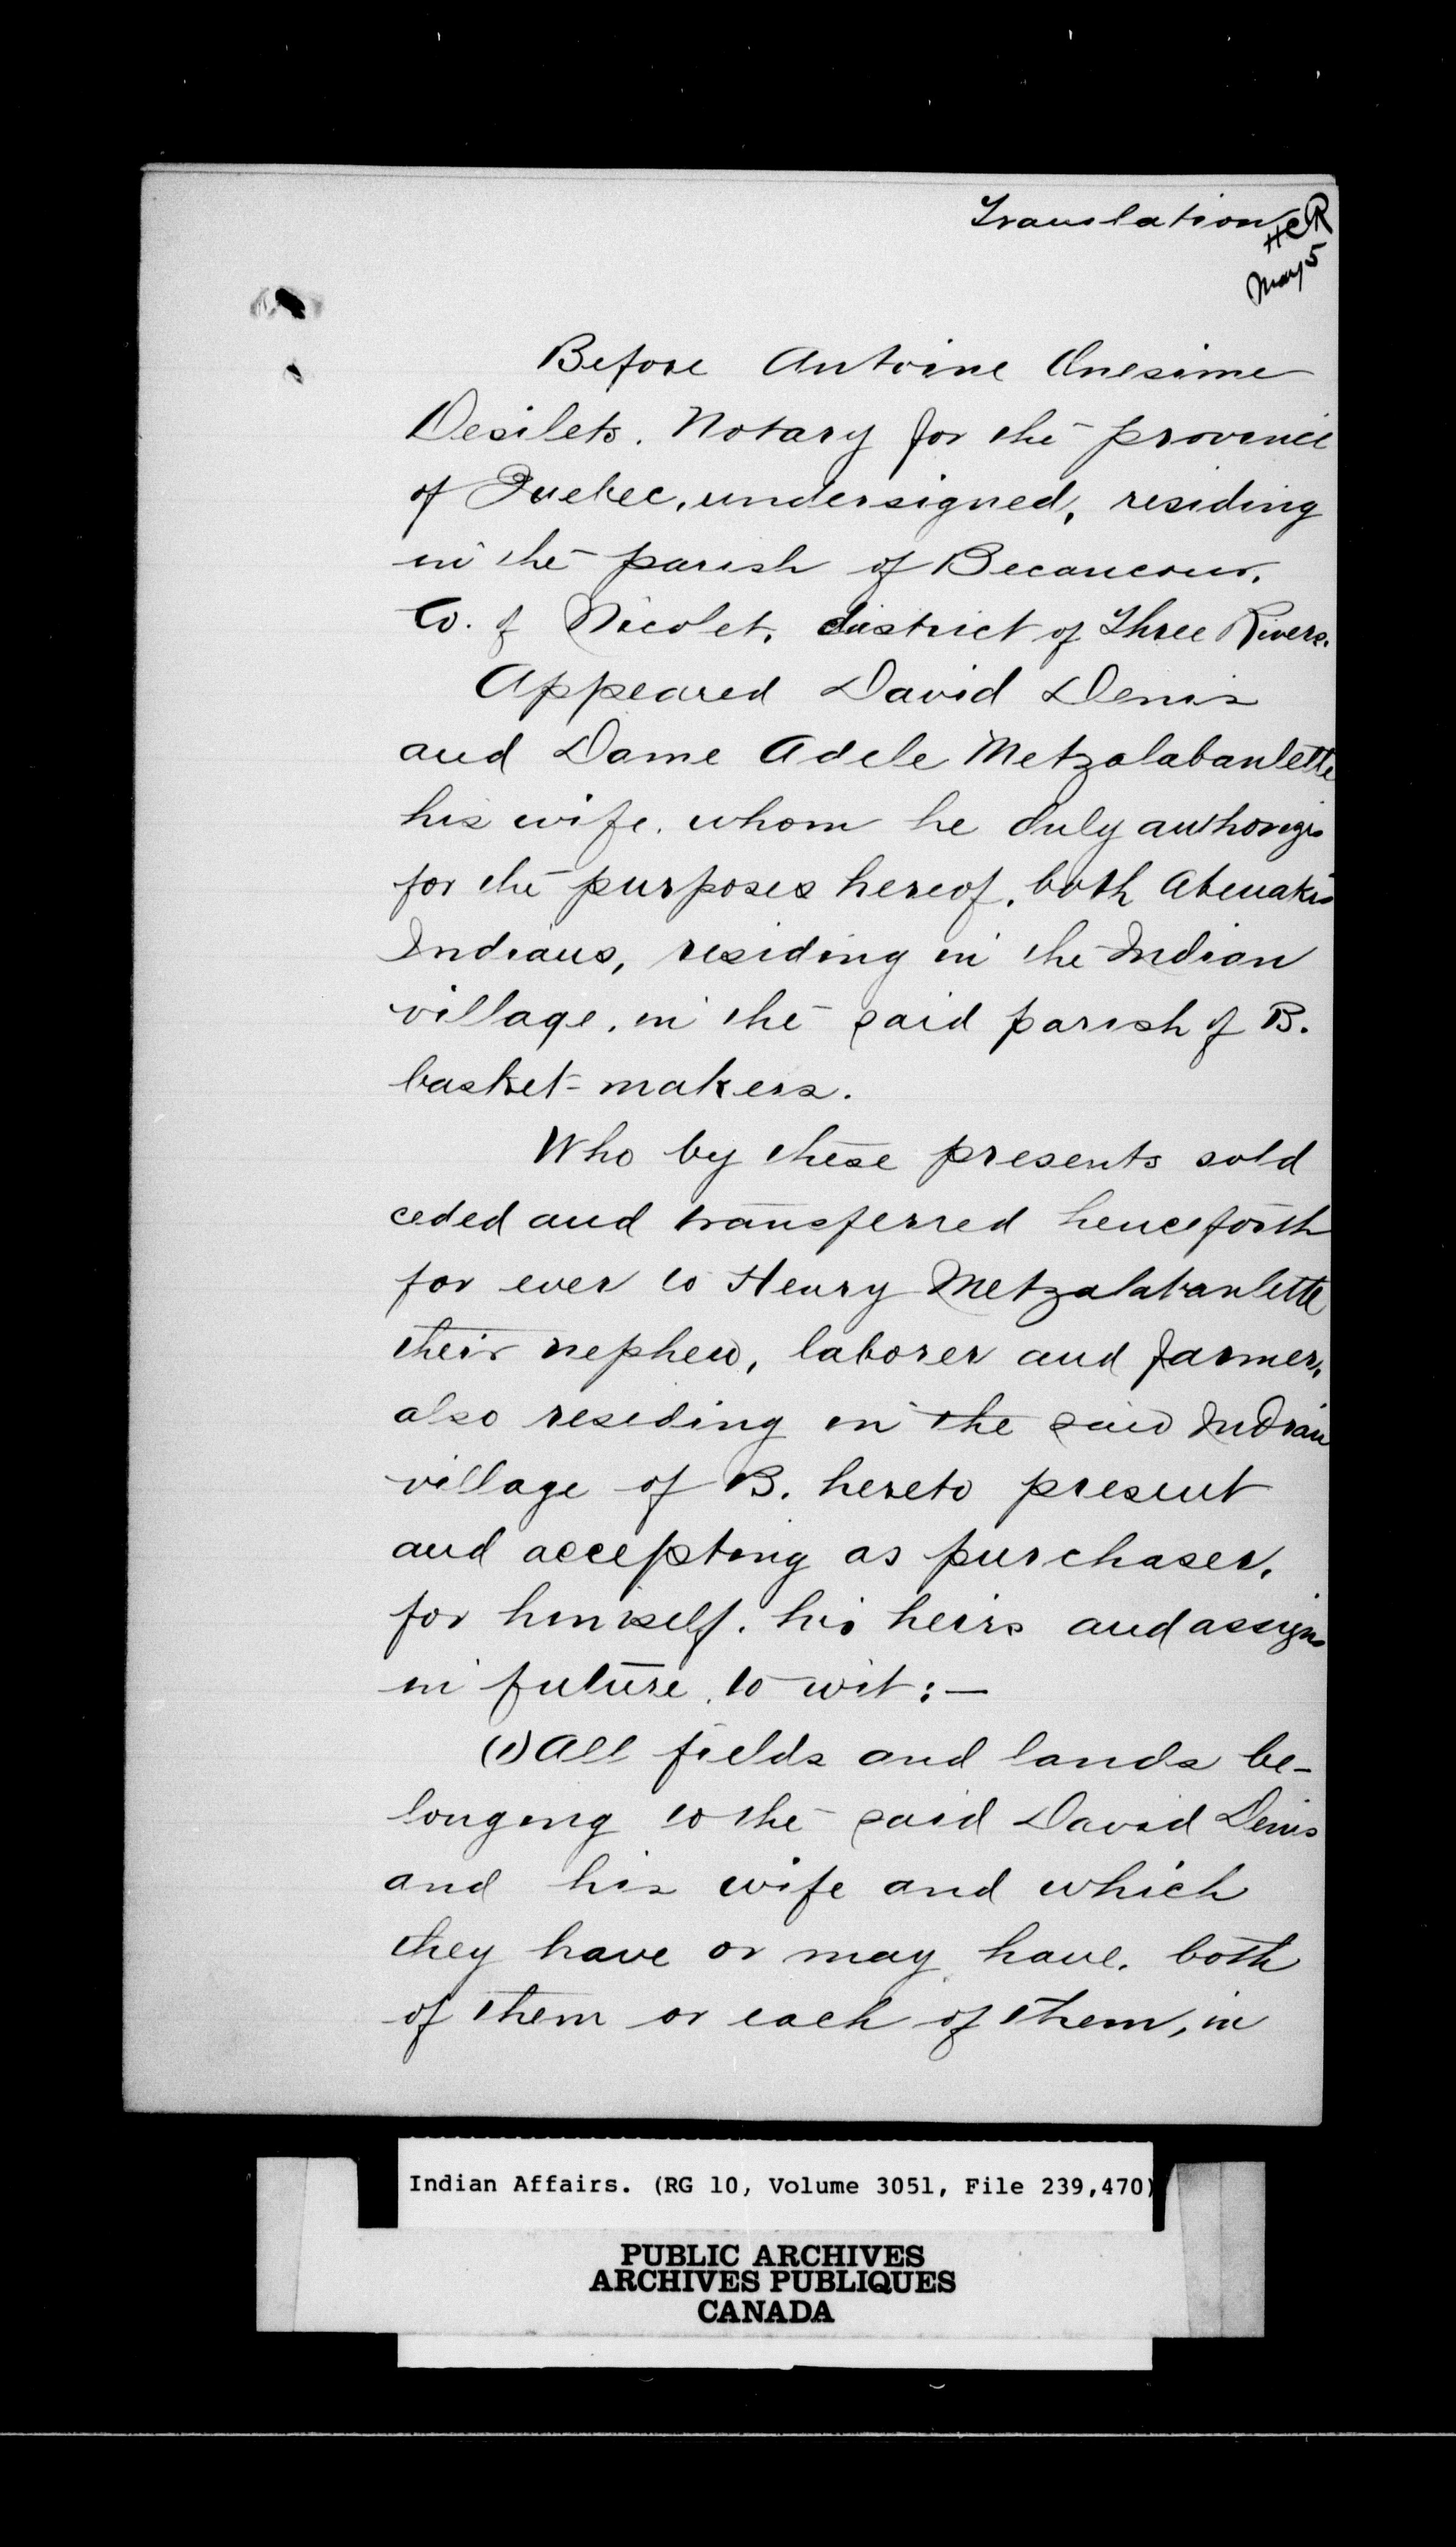 Translation
HCR
May 5
Before Antoine Onesime
Desilets. Notary for the province
of Quebec, undersigned, residing
in the parish of Becancour,
Co. of Nicolet, district of Three Rivers.
Appeared David Denis
and Dame Adele Metzalabanlette
his wife. whom he duly authorizes
for the purposes hereof, both Abenakis
Indians, residing in the Indian
village, in the said parish of B.
basket-makers.
Who by these presents sold
ceded and transferred henceforth
for ever to Henry Metzalabanlette
their nephew, laborer and farmer,
also residing in the said Indian
village of B. hereto present
and accepting as purchaser,
for himself, his heirs and assigns
in future, to wit:—
(1) All fields and lands be-
longing to the said David Denis
and his wife and which
they have or may have, both
of them or each of them, in
Indian Affairs. (RG 10, Volume 3051, File 239,470)
PUBLIC ARCHIVES
ARCHIVES PUBLIQUES
CANADA